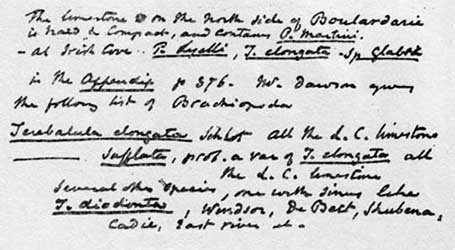 The limestone on the North side of Boulardarie
is hard & Compact, and contains P. Martini.
- at Irish Cove - P. Lyelli, T. elongata - Sp Glaber
in the Appendix p 376. Mr. Dawson gives
the following list of Brachiopoda
Terebatula elongata Schlot all the L. C. limestone
——— Sufflata, prob. a var of T. elongata all
the L. C. limestone
Several other species, one with sinus like
T. diodonta, Windsor, De Bert, Shubena,
cadie, East river et.